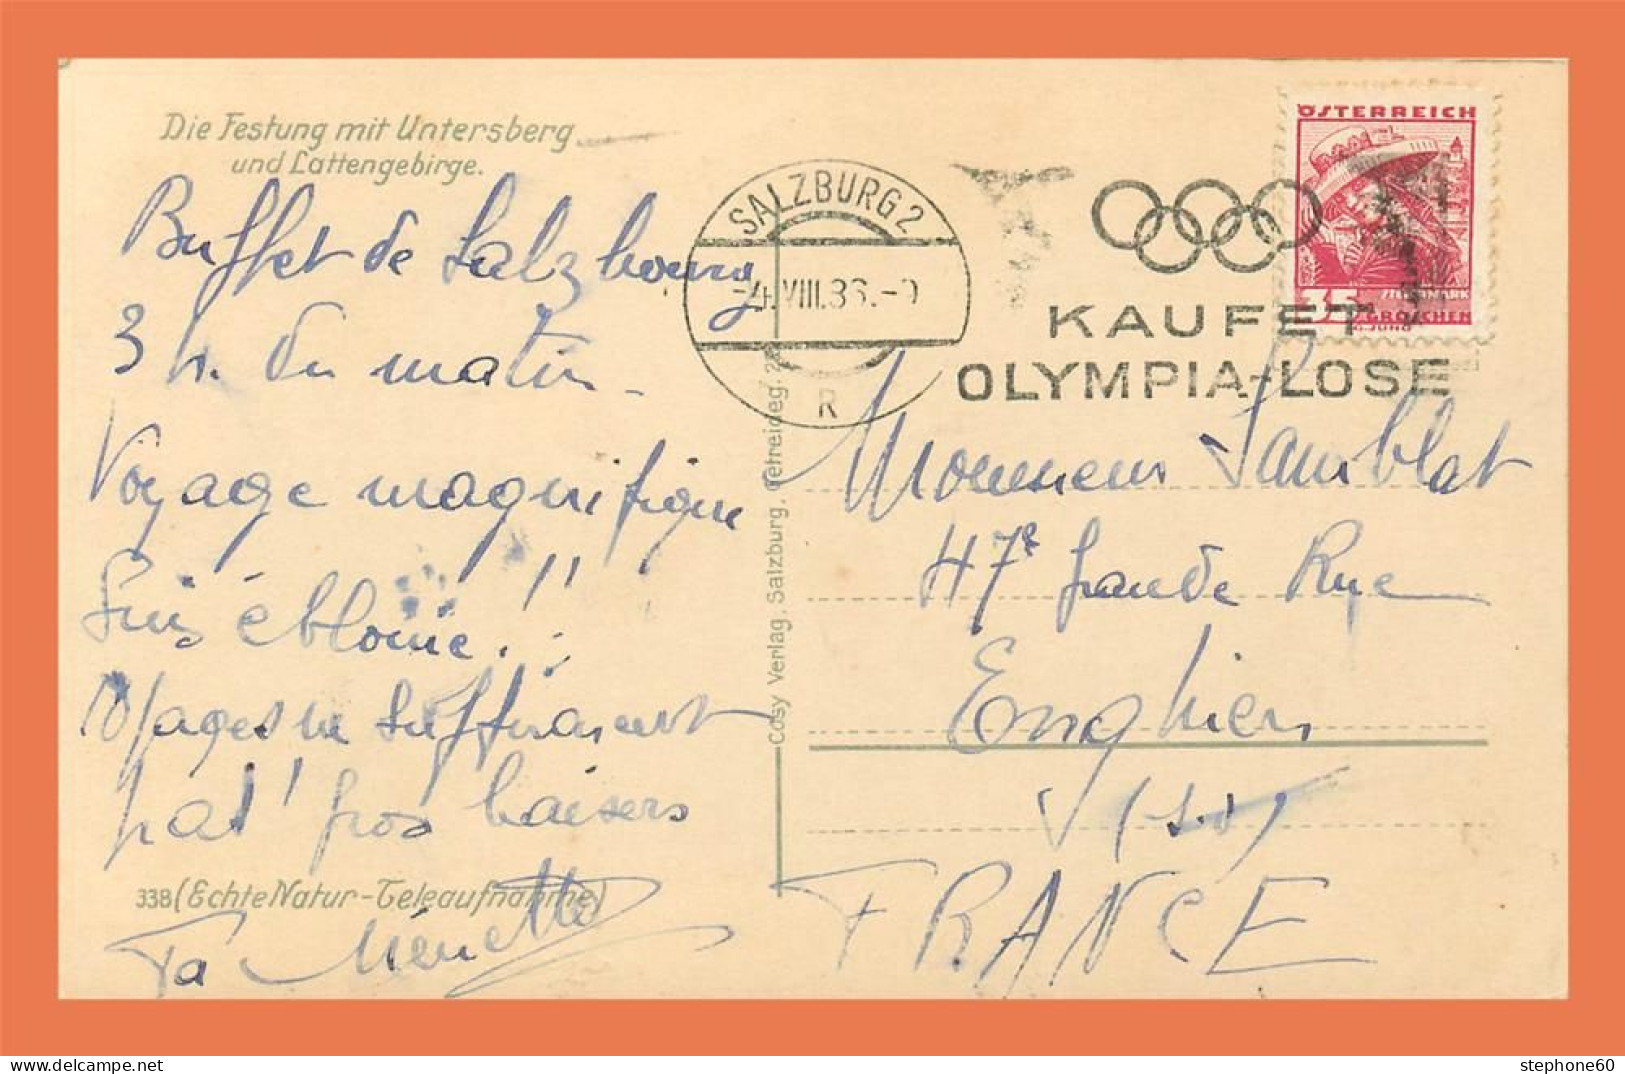 Die Festung mit Untersberg
und Lattengebirge.
Buffet de Salzbourg
3 h. du matin -
Voyage magnifique
Suis éblouie !!!
pages ne suffiraient
pas ! gros baisers
33B (Echte Natur-Teleaufnahme)
Ta Ménette
Cosy Verlag. Salzburg, Getreideg. 2
SALZBURG 2
-4.VIII.36.-9
R
KAUFET
OLYMPIA-LOSE
ÖSTERREICH
STEIERMARK
35 GROSCHEN
G. JUNG
Monsieur Lamblat
47 grande Rue
Enghien
(S.O)
FRANCE
stephone60